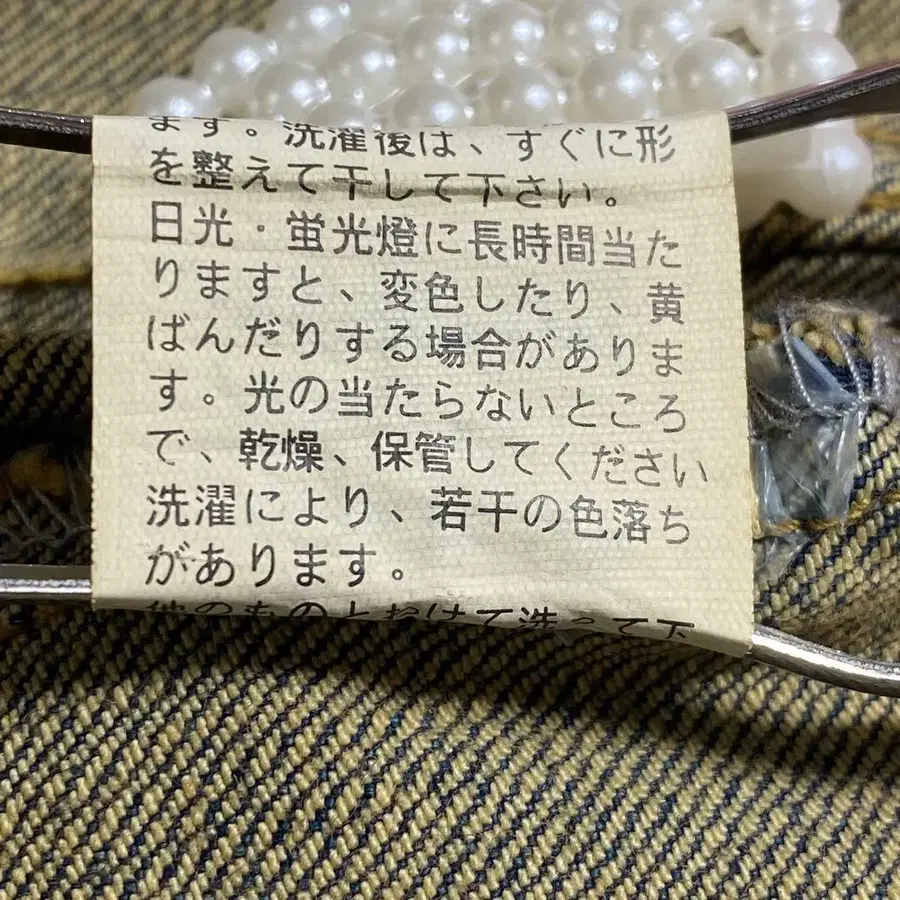 ます。洗濯後は、すぐに形
を整えて干して下さい。
日光・蛍光燈に長時間当た
りますと、変色したり、黄
ばんだりする場合がありま
す。光の当たらないところ
で、乾燥、保管してください
洗濯により、若干の色落ち
があります。
他のものと分けて洗って下